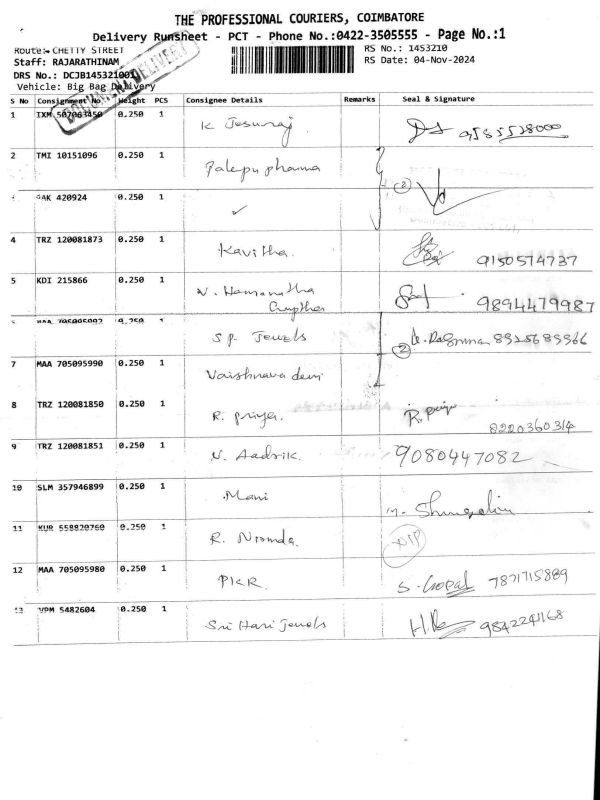 THE PROFESSIONAL COURIERS, COIMBATORE
Delivery Runsheet - PCT - Phone No.:0422-3505555 - Page No.:1
Route:- CHETTY STREET RS No.: 1453210
Staff: RAJARATHINAM RS Date: 04-Nov-2024
DRS No.: DCJB145321001
Vehicle: Big Bag Delivery
S No Consignment No Weight PCS Consignee Details Remarks Seal & Signature
1 IXM 507063450 0.250 1 K. Jesuraj
2 TMI 10151096 0.250 1 Palepu pharma
420924 0.250 1 ✓ ②
4 TRZ 120081873 0.250 1 Kavitha. 9150574737
5 KDI 215866 0.250 1 N. Hemanatha 9894479987
Guptha
0.250 1 S.P. Jewels 8925689566
7 MAA 705095990 1 Vaishnava devi ②
8 TRZ 120081850 0.250 1 R. Priya. R. Priya 8220360314
9 TRZ 120081851 0.250 1 N. Aadrik. 9080447082
10 SLM 357946899 0.250 1 Mani
11 KUR 558820760 0.250 1 R.
12 MAA 705095980 0.250 1 PKR. S. Gopal 7871715889
13 VPM 5482604 0.250 1 Sri Hari Jewels 9842241168